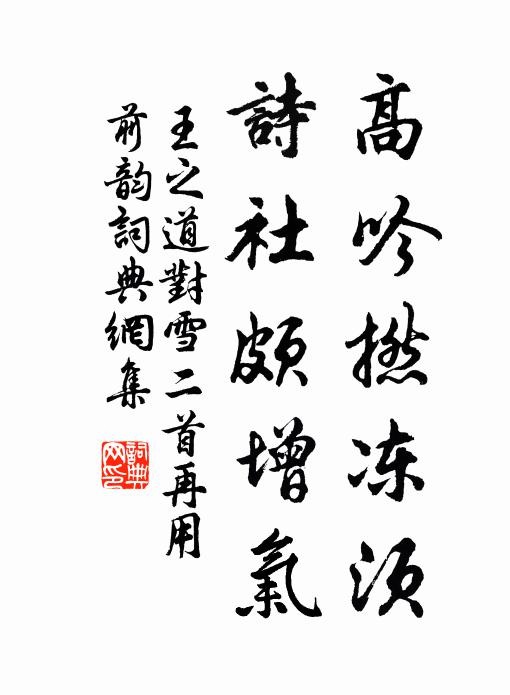 高吟撚冻须
詩社頗增氣
王之道對雪二首再用
前韵詞典網集
詞典
网印